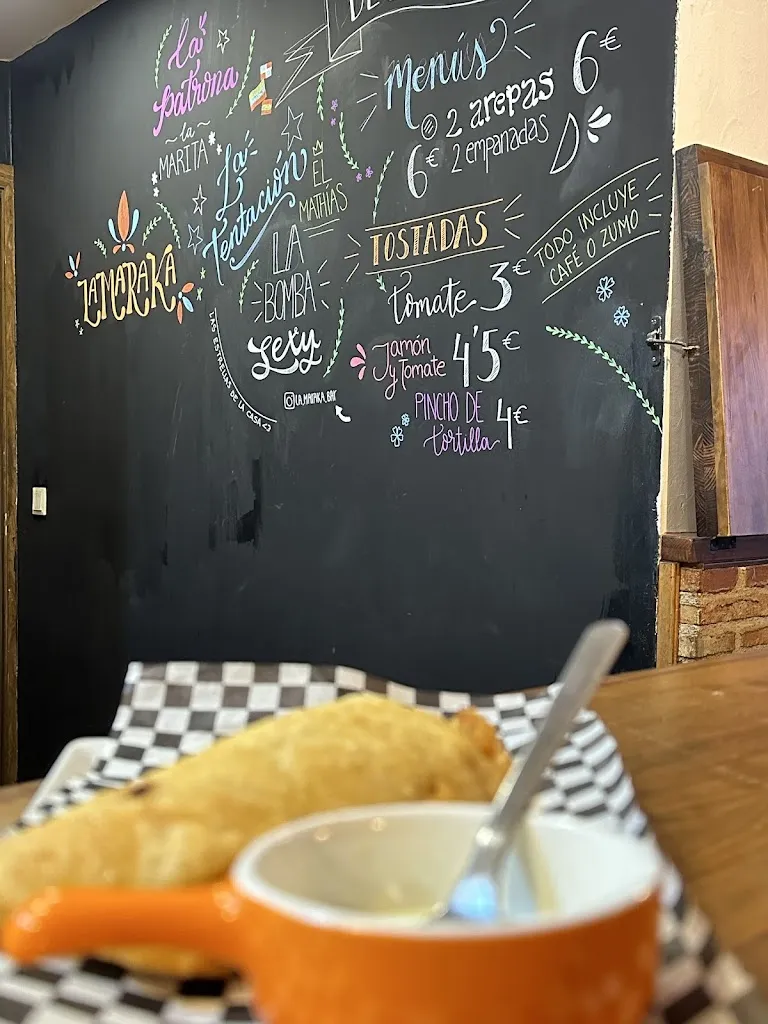 La
patrona
la
MARITA
La
Tentación
EL
MATHÍAS
LA MARAKA
LA
BOMBA
Sexy
LAS ESTRELLAS DE LA CASA <3
LA_MARAKA_BAR
Menús
2 arepas 6€
6€ 2 empanadas
TOSTADAS
TODO INCLUYE
CAFÉ O ZUMO
tomate 3€
Jamón
y Tomate 4'5€
PINCHO DE
tortilla 4€